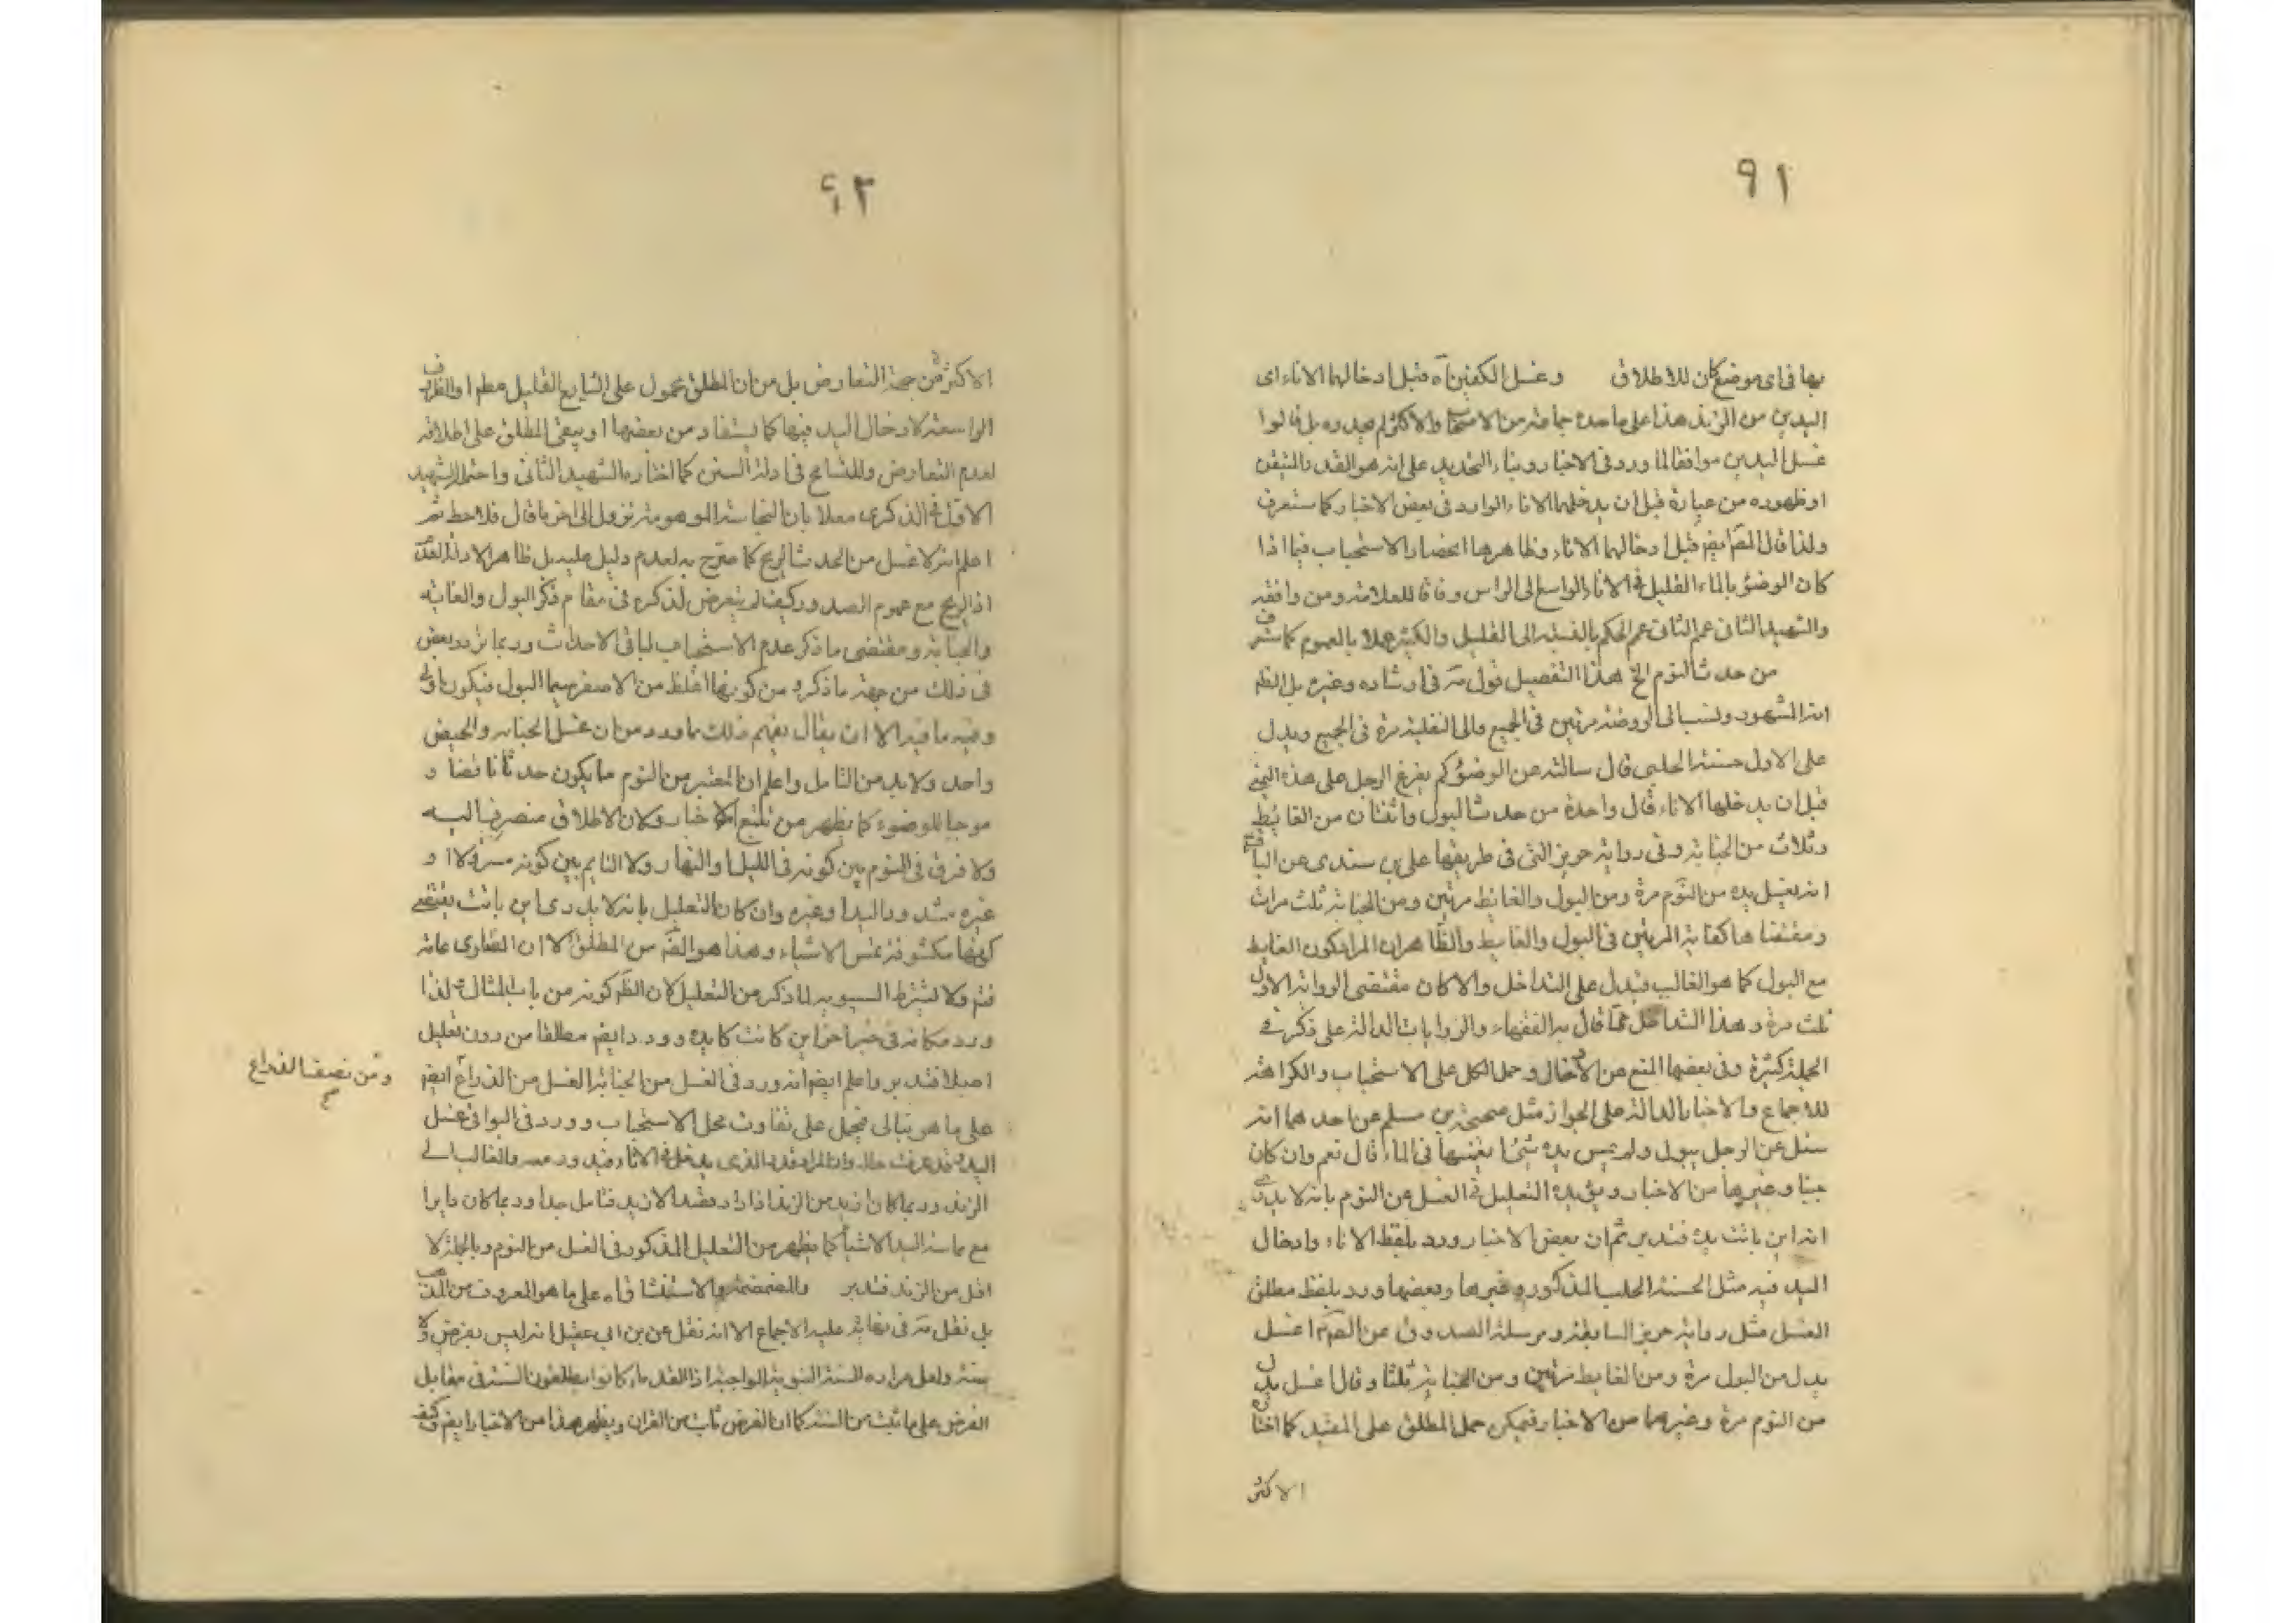 ٩١
بها فى اى موضع كان للاطلاق وغسل الكفين آه قبل ادخالهما الاناء اى
اليدين من الزند هذا على ما حده جماعة من الاصحاب والاكثر لم يحدوه بل قالوا
غسل اليدين موافقا لما ورد فى الاخبار وبناء التحديد على انه هو القدر المتيقن
او ظهوره من عبارة قبل ان يدخلهما الاناء الوارد فى بعض الاخبار كما ستعرف
ولذا قال المص ايض قبل ادخالهما الاناء وظاهرها انحصار الاستحباب فيما اذا
كان الوضوء بالماء القليل فى الاناء الواسع الراس وفاقا للعلامة ومن وافقه
والشهيد الثانى عمم الحكم بالنسبة الى القليل والكثير عملا بالعموم كما ستعرف
من حدث النوم الخ هذا التفصيل قول مة فى ارشاده وغيره بل الظ
انه المشهور ونسب الى الروضة مرتين فى الجميع والى النفلية مرة فى الجميع ويدل
على الاول حسنة الحلبى قال سالته عن الوضوء كم يفرغ الرجل على هذه اليمنى
قبل ان يدخلها الاناء قال واحدة من حدث البول واثنتان من الغايط
وثلاث من الجنابة وفى رواية حريز التى فى طريقها على بن سندى عن الباقر
انه يغسل يده من النوم مرة ومن البول والغايط مرتين ومن الجنابة ثلث مرات
ومقتضاها كفاية المرتين فى البول والغايط والظاهر ان المراد كون الغايط
مع البول كما هو الغالب فيدل على التداخل والا كان مقتضى الرواية الاولى
ثلث مرة وهذا التداخل مما قال به الفقهاء والروايات الدالة على ذكر فى
الجملة كثيرة وفى بعضها المنع من الادخال وحمل الكل على الاستحباب والكراهة
للاجماع والاخبار الدالة على الجواز مثل صحيحة بن مسلم عن احدهما انه
سئل عن الرجل يبول ولم يمس يده شئ ايغمسها فى الماء قال نعم وان كان
جنبا وغيرها من الاخبار ويؤيده التعليل فى الغسل عن النوم بانه لا يدرى
انه اين باتت يده فتدبر ثم ان بعض الاخبار ورد بلفظ الاناء وادخال
اليد فيه مثل الحسنة الحلبى المذكور وغيرها وبعضها ورد بلفظ مطلق
الغسل مثل رواية حريز السابقة ومرسلة الصدوق عن الصم اغسل
يدك من البول مرة ومن الغايط مرتين ومن الجنابة ثلثا وقال اغسل يدك
من النوم مرة وغيرهما من الاخبار فيمكن حمل المطلق على المقيد كما اختاره
الاكثر
٩٢
الاكثر لا من جهة التعارض بل من ان المطلق محمول على الشايع القليل مطم او الظرف
الواسعة لادخال اليد فيها كما يستفاد من بعضها او يبقى المطلق على اطلاقه
لعدم التعارض وللتسامح فى ادلة السنن كما اختاره الشهيد الثانى واحتمله الشهيد
الاول فى الذكرى معللا بان النجاسة الموهومة تزول الى اخر ما قال فلاحظ ثم
اعلم انه لا غسل من الحدث الريح كما صرح به لعدم دليل عليه بل ظاهر الادلة العدم
اذ الريح مع عموم الصدور كيف لم يتعرض لذكره فى مقام ذكر البول والغايط
والجنابة ومقتضى ما ذكر عدم الاستحباب لباقى الاحداث وربما تردد بعض
فى ذلك من جهة ما ذكره من كونها اغلظ من الاصغر سيما البول فيكون اولى
وفيه ما فيه الا ان يقال يفهم ذلك مما ورد من ان غسل الجنابة والحيض
واحد ولا بد من التامل واعلم ان المعتبر من النوم ما يكون حدثا ناقضا و
موجبا للوضوء كما يظهر من تتبع الاخبار ولان الاطلاق منصرف اليه
ولا فرق فى النوم بين كونه فى الليل والنهار ولا النايم بين كونه مسرولا او
غيره مشدود اليد او غيره وان كان التعليل بانه لا يدرى اين باتت يقتضى
كونها مكشوفة تمس الاشياء وهذا هو الظ من المطلق الا ان الفتاوى عامة
فتم ولا يشترط السبوبة لما ذكر من التعليل لان الظ كونه من باب المثال ولذا
ورد مكانه فى خبر اخر اين كانت كايده وورد ايضم مطلقا من دون تعليل
اصلا فتدبر واعلم ايضم انه ورد فى الغسل من الجنابة الغسل من الذراع ايضم
على ما هو ببالى فيحمل على تفاوت محل الاستحباب وورد فى البواقى غسل
اليد وقد عرفت حال وان المراد قدر الذى يدخل فى الاناء والغالب الى
الزند وربما كان ازيد من الزند اذا اراد قصد الازيد فتامل جدا وربما كان دايرا
مع مماسة اليد الاشياء كما يظهر من التعليل المذكور فى الغسل من النوم وبالجملة لا
اقل من الزند فتدبر والمضمضة والاستنشاق آه على ما هو المعروف من المذهب
بل نقل مة فى نهاية عليه الاجماع الا انه نقل عن بن ابى عقيل انه ليس بفرض ولا
سنة ولعل مراده السنة النبوية الواجبة اذ القدماء كانوا يطلقون السنة فى مقابل
الفرض على ما ثبت من السنة كما ان الفرض ثابت من القران ويظهر هذا من الاخبار ايضم وكيف
ومن نصف الذراع